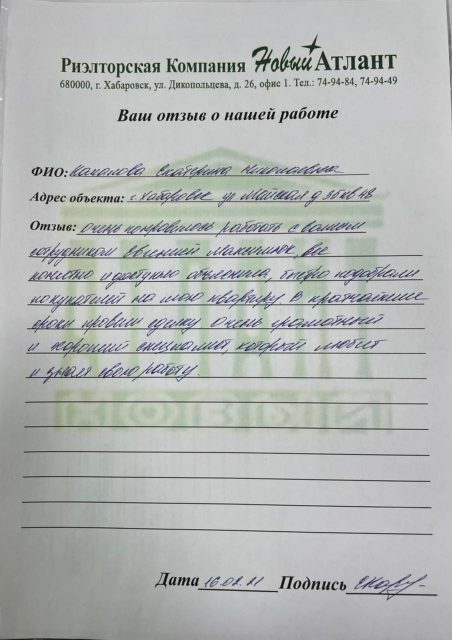 Риэлторская Компания Новый Атлант
680000, г. Хабаровск, ул. Дикопольцева, д. 26, офис 1. Тел.: 74-94-84, 74-94-49
Ваш отзыв о нашей работе
ФИО: Екатерина Николаевна
Адрес объекта: г. Хабаровск ул Майская д 35 кв 48
Отзыв: Очень понравилось работать с вашим
сотрудником Евгенией Максимюк, все
понятно и доступно объяснила, быстро подобрали
покупателей на мою квартиру. В кратчайшие
сроки провели сделку. Очень грамотный
и хороший специалист, который любит
и знает свою работу.
Дата Подпись